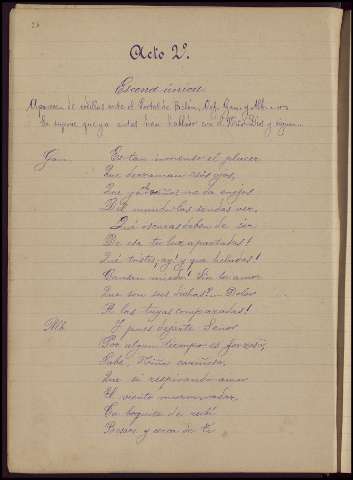 Acto 2º.
Escena única.
Aparecen de rodillas ante el Portal de Belén, Def. Gam. y Alb.
Se supone que ya estos han hablado con el Niño Dios y siguen
Gam. Es tan inmenso el placer
Que derraman esos ojos,
Que ya no da enojos
Del mundo las sendas ver.
Qué oscuras deben de ser
De esa tu luz apartadas!
Qué tristes, ay! y que heladas!
Causan miedo! Sin tu amor
Que son sus dichas?... Dolor
A las tuyas comparadas!
Alb. Y pues dejarte Señor
Por algun tiempo es forzoso,
Sabe, Niño cariñoso,
Que si respirando amor
El viento murmurador,
Tu boquita de rubí
Besare y cerca de ti